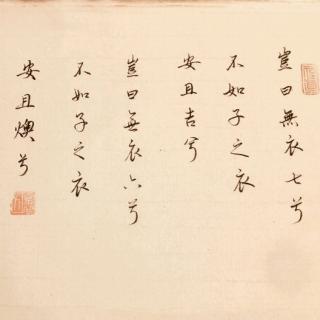 豈曰無衣七兮
不如子之衣
安且吉兮
豈曰無衣六兮
不如子之衣
安且燠兮